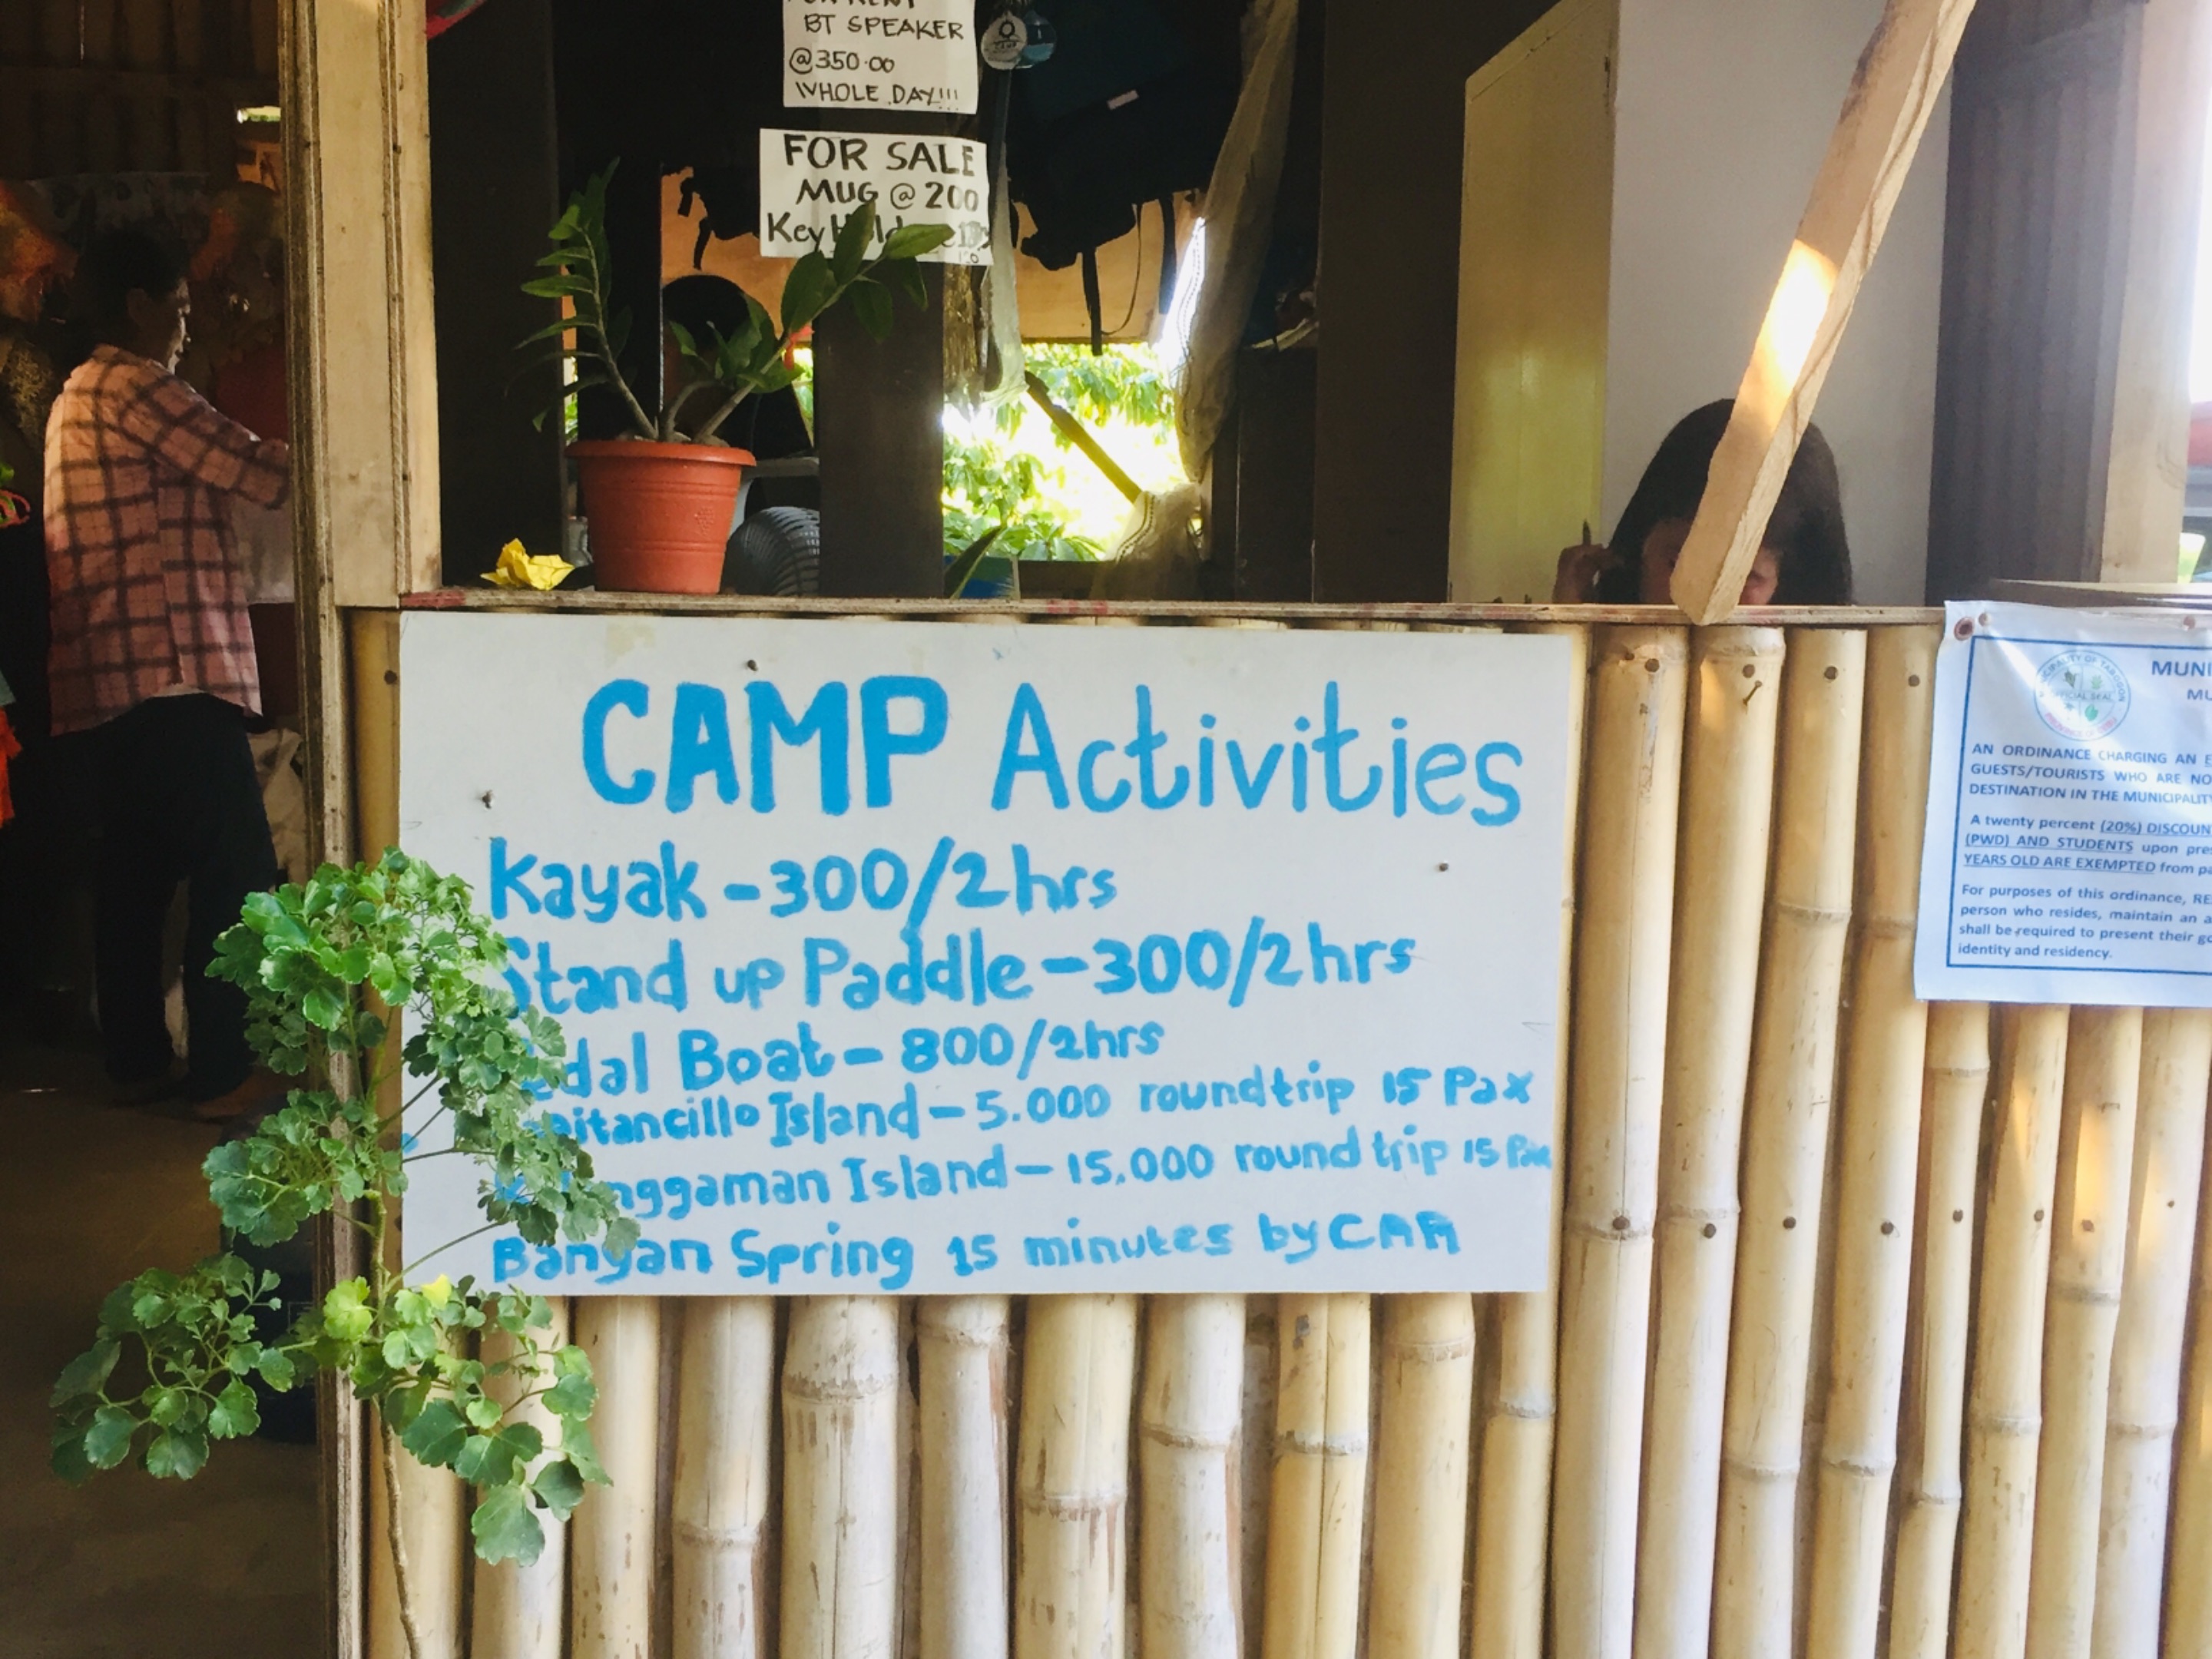 BT SPEAKER
@350.00
WHOLE DAY!!!
FOR SALE
MUG @ 200
CAMP Activities
Kayak - 300/2hrs
Stand up Paddle - 300/2hrs
Boat - 800/2hrs
Island - 5.000 roundtrip 15 Pax
Island - 15.000 round trip 15 Pax
Banyan Spring 15 minutes by CAR
AN ORDINANCE CHARGING AN
GUESTS/TOURISTS WHO ARE
DESTINATION IN THE
A twenty percent (20%)
(PWD) AND STUDENTS upon
YEARS OLD ARE EXEMPTED from
For purposes of this ordinance,
person who resides, maintain an
shall be required to present their
identity and residency.